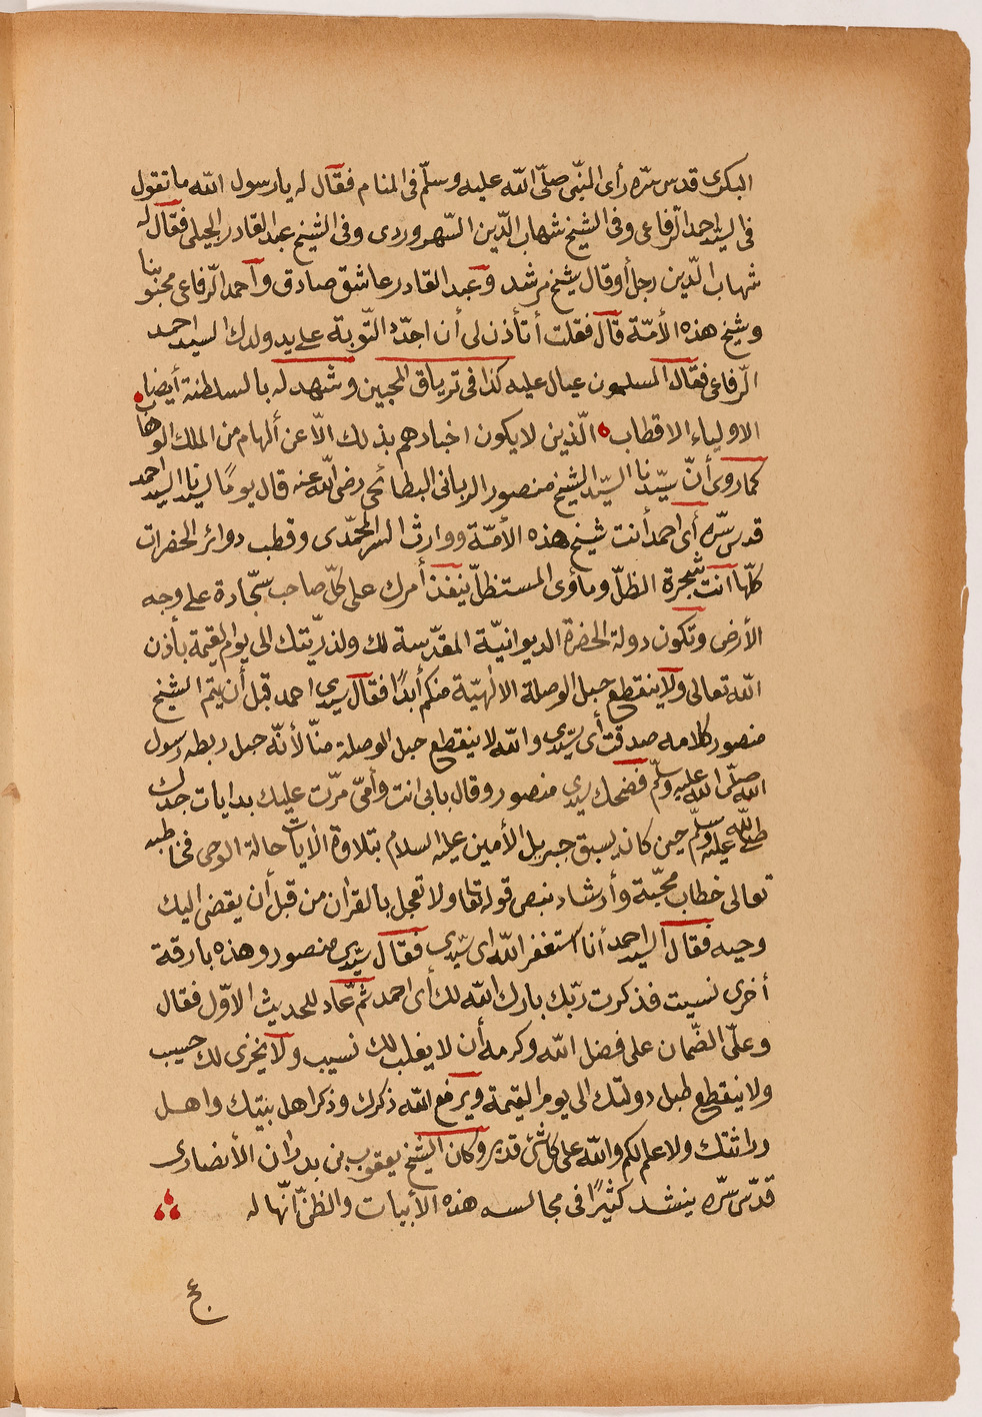 البكرى قدس سرّه رأى النبّى صلّى اللّه عليه وسلّم فى المنام فقال له يارسول اللّه ماتقول
فى السيّد احمد الرّفاعى وفى الشيخ شهاب الدّين السّهروردى وفى الشيخ عبد القادر الجيلى فقال له
شهاب الدّين رجل أوقال شيخ مرشد وعبد القادر عاشق صادق وأحمد الرّفاعى محبوبنا
وشيخ هذه الأمّة قال فقلت أتأذن لى أن اجدّد التّوبة على يد ولدك السيد احمد
الرّفاعى فقال المسلمون عيال عليه كذا فى ترياق المحبين وشهد له بالسلطنة أيضا
الاولياء الاقطاب الّذين لايكون اخبارهم بذلك الاّ عن ألهام من الملك الوهاب
كماروى أنّ سيّدنا السيّد الشيخ منصور الربانى البطائحى رضى اللّه عنه قال يومًا لسيدنا السيد احمد
قدس سرّه أى احمد أنت شيخ هذه الأمّة ووارث السر المحمّدى وقطب دوائر الحضرات
كلّها انت شجرة الظلّ ومأوى المستظلّ ينفذ أمرك على كلّ صاحب سجّادة على وجه
الأرض وتكون دولة الحضرة الديوانيّة المقدّسة لك ولذريّتك الى يوم القيمة بأذن
اللّه تعالى ولا ينقطع حبل الوصلة الالهيّة منكم أبدًا فقال سيدى احمد قبل أن يتم الشيخ
منصور كلامه صدقت أى سيّدى واللّه لاينقطع حبل الوصلة منّا لأنّه حبل ربطه رسول
اللّه صلّى اللّه عليه وسلّم فضحك سيدى منصور وقال بابى انت وأمىّ مرّت عليك بدايات جدك
صلى اللّه عليه وسلّم حين كان يسبق جبريل الأمين عليه السلام بتلاوة الأيات حالة الوحى فخاطبه
تعالى خطاب محبّة وأرشاد بنص قوله تعا ولا تعجل بالقران من قبل أن يقضى اليك
وحيه فقال السيد احمد أنا استغفر اللّه اى سيّدى فقال سيّدى منصور وهذه بارقة
أخرى نسيت فذكرت ربّك بارك اللّه لك أى احمد ثمّ عاد للحديث الاوّل فقال
وعلىّ الضّمان على فضل اللّه وكرمه أن لا يغلب لك نسيب ولا يخزى لك حسيب
ولاينقطع طبل دولتك الى يوم القيمة ويرفع اللّه ذكرك وذكر اهل بيتك واهل
وراثتك ولاعملكم واللّه على كل شئ قدير وكان الشيخ يعقوب بن بدران الأنصارى
قدّس سرّه ينشد كثيرًا فى مجالسه هذه الأبيات والظنّ انّها له